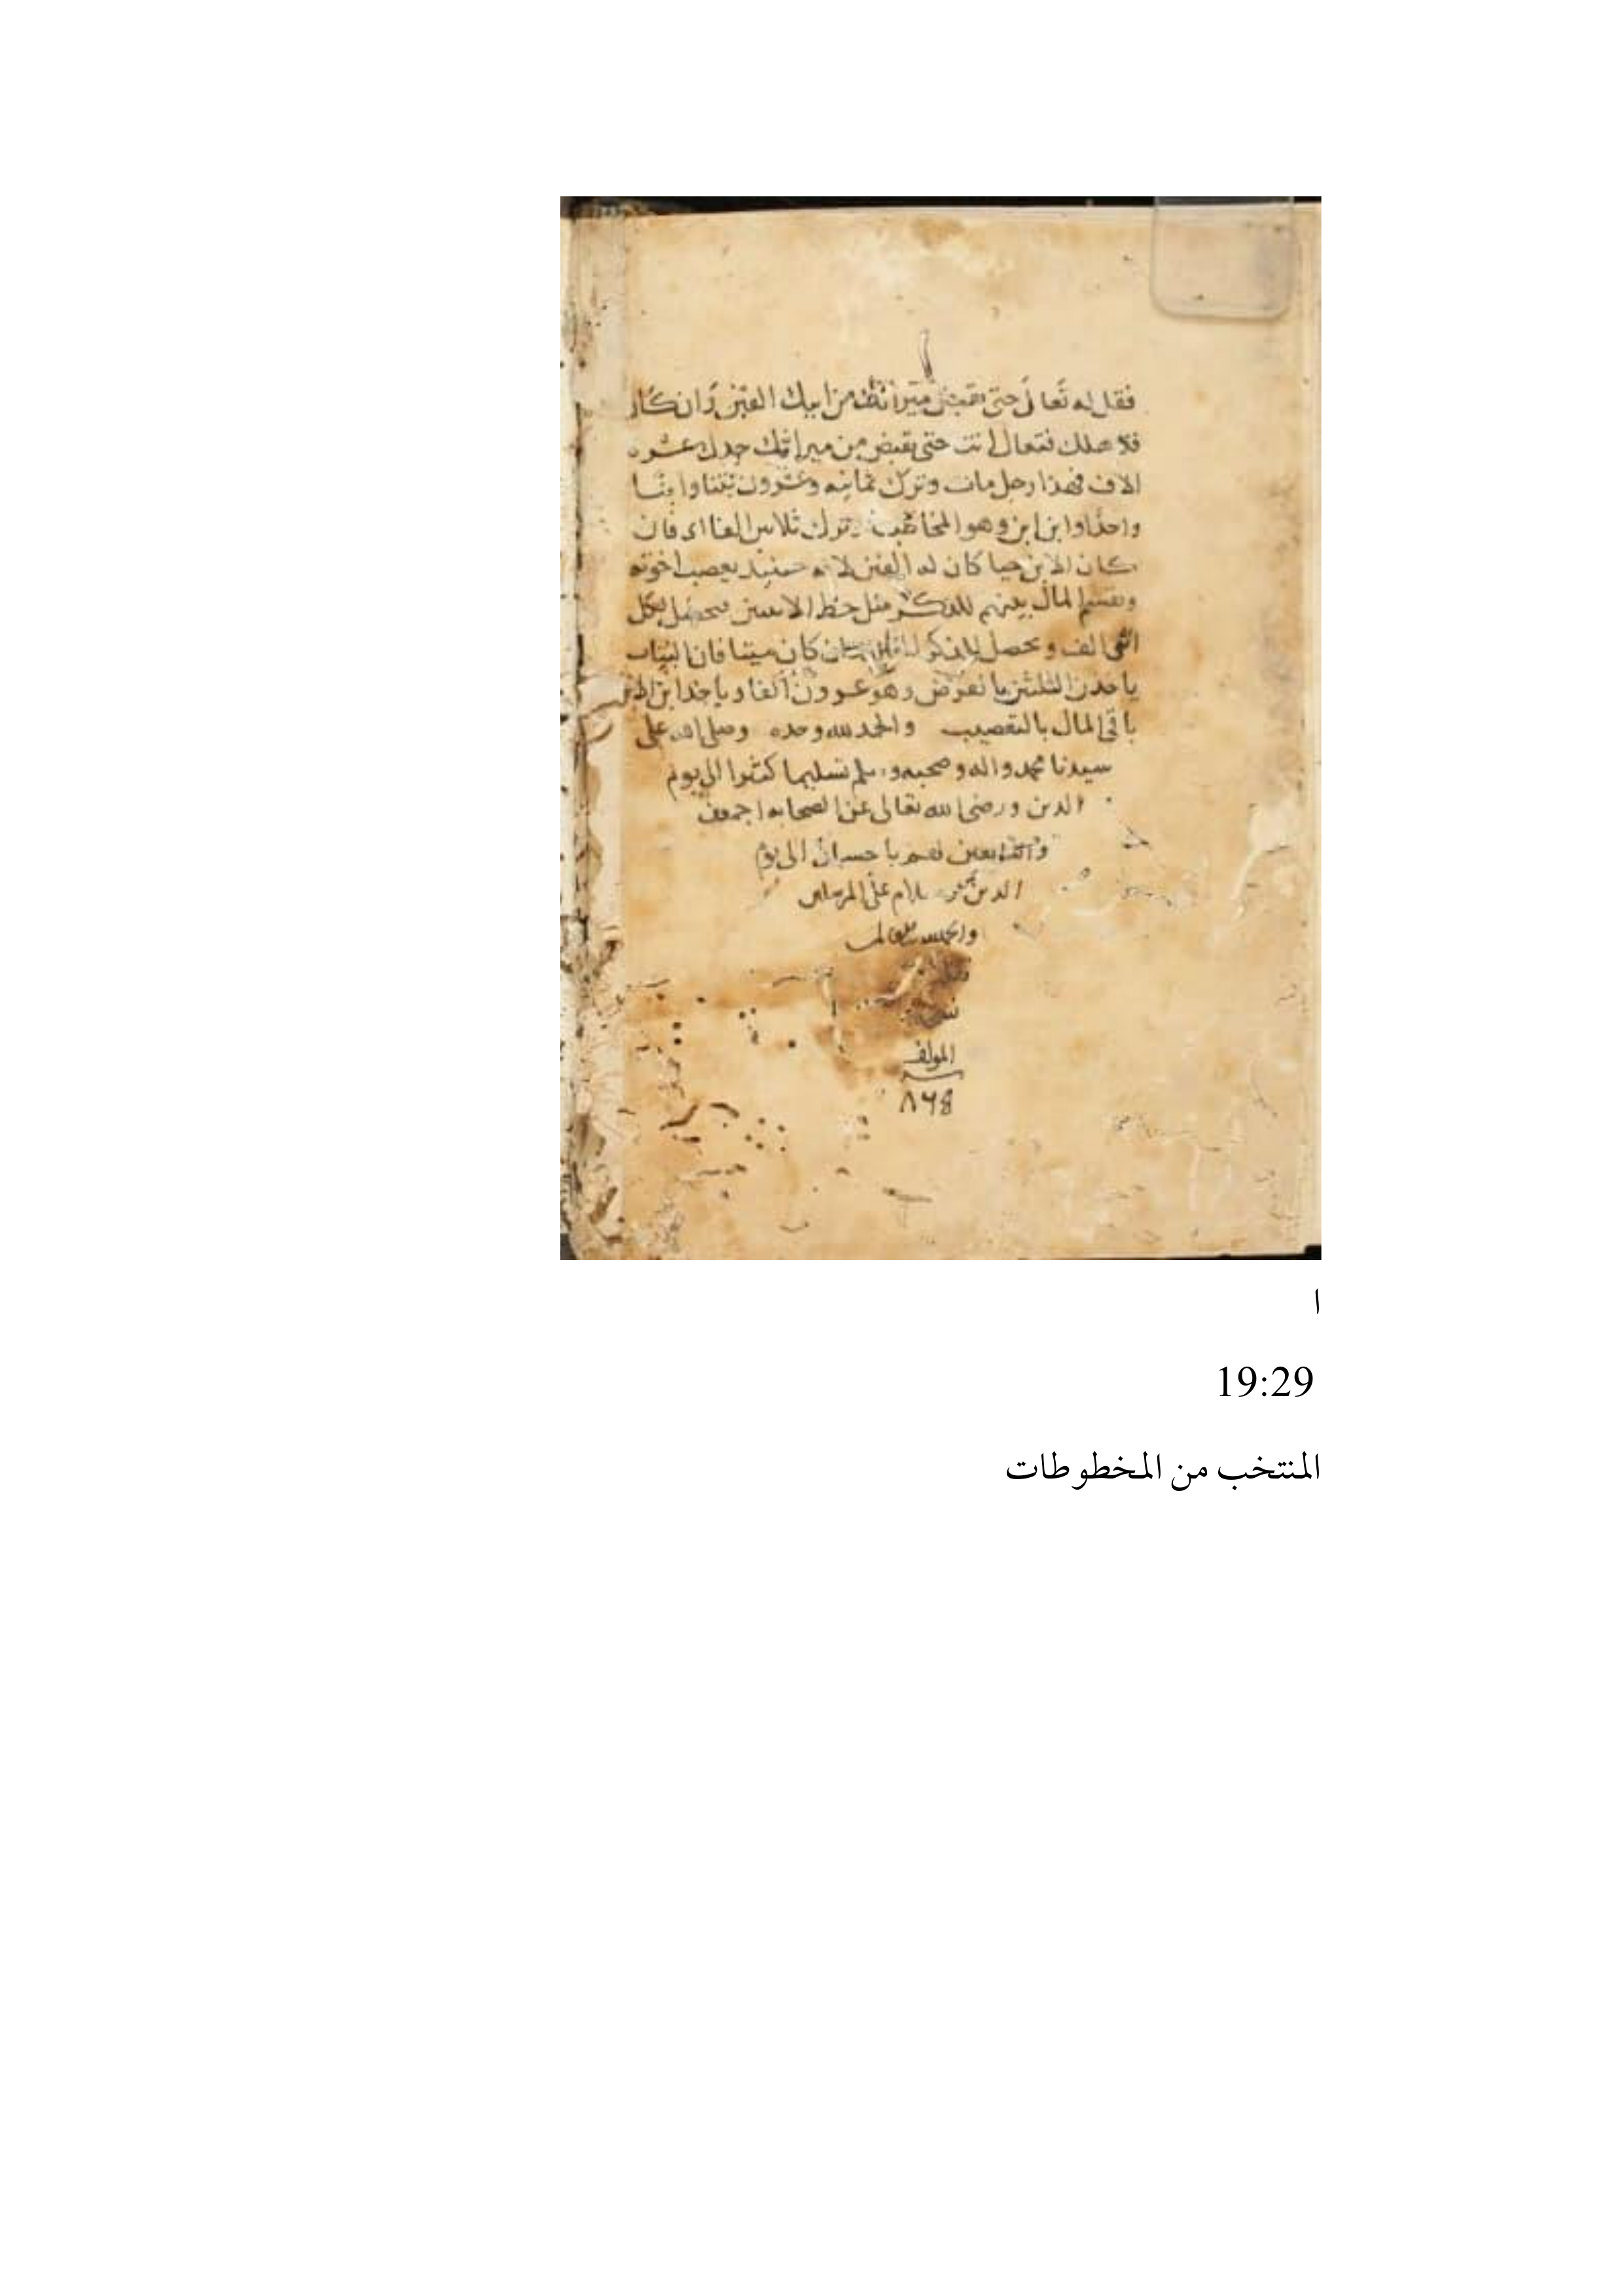 فقل له تعال حتى تقبض ميراثك من ابيك الفين وان كان
فلا عليك فتعال انت حتى تقبض من ميراثك جدك عشره
الاف فهذا رجل مات وترك ثمانيه وعشرون بنتا وابنا
واحدا وابن ابن وهو المخاطب وترك ثلاثين الفا فان
كان الابن حيا كان له الفين لانه حينيد يعصب اخوته
ويقسم المال بينهم للذكر مثل حظ الانثيين فيحصل لكل
انثى الف ويحصل للذكر كان ميتا فان البنات
ياخذن الثلثين بالفرض وهو عشرون الفا وياخذ ابن الابن
باقي المال بالتعصيب والحمد لله وحده وصلى الله على
سيدنا محمد واله وصحبه وسلم تسليما كثيرا الى يوم
الدين ورضي الله تعالى عن الصحابه اجمعين
والتابعين لهم باحسان الى يوم
الدين وسلام على المرسلين
والحمد لله
المولف
٨٦٤
ا
19:29
المنتخب من المخطوطات